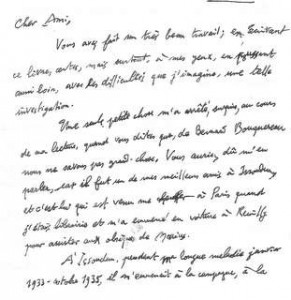 Cher Ami,
Vous avez fait un très beau travail ; en écrivant
ce livre, certes, mais surtout, à mes yeux, en poussant
aussi loin, avec les difficultés que j'imagine, une telle
investigation.
Une seule petite chose m'a arrêté, surpris, au cours
de ma lecture, quand vous dites que, de Bernard Bouquereau
nous ne savons pas grand-chose. Vous auriez dû m'en
parler, car il fut un de mes meilleurs amis à Issoudun,
et c'est lui qui est venu me à Paris quand
j'étais libraire et m'a emmené en voiture à Reuilly
pour assister aux obsèques de
A Issoudun, pendant ma longue maladie janvier
1933 - octobre 1935, il m'emmenait à la campagne, à la